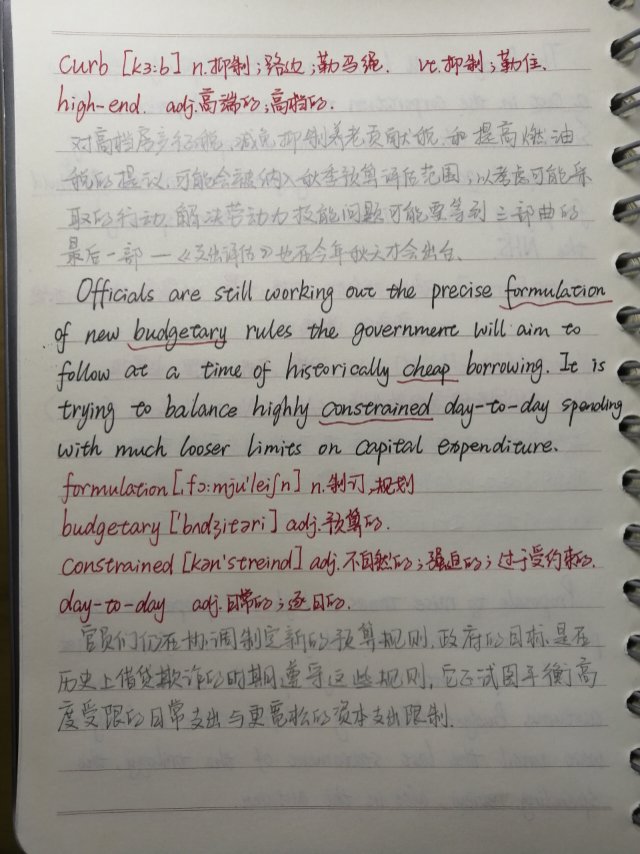 curb [kɜ:b] n.抑制;路边;勒马绳. vt.抑制;勒住.
high-end. adj.高端的;高档的.
对高档房产征税,减免抑制养老贡献税,和提高燃油
税的提议,可能会被纳入秋季预算评估范围,以考虑可能采
取的行动.解决劳动力技能问题可能要等到三部曲的
最后一部—《支出评估》也在今年秋天才会出台.
Officials are still working out the precise formulation
of new budgetary rules the government will aim to
follow at a time of historically cheap borrowing. It is
trying to balance highly constrained day-to-day spending
with much looser limits on capital expenditure.
formulation [.fɔ:mju'leiʃn] n.制订,规划
budgetary ['bʌdʒitəri] adj.预算的.
constrained [kən'streind] adj.不自然的;强迫的;过于受约束的.
day-to-day adj.日常的;逐日的.
官员们仍在协调制定新的预算规则,政府的目标是在
历史上借贷欺诈的时期遵守这些规则,它正试图平衡高
度受限的日常支出与更宽松的资本支出限制.